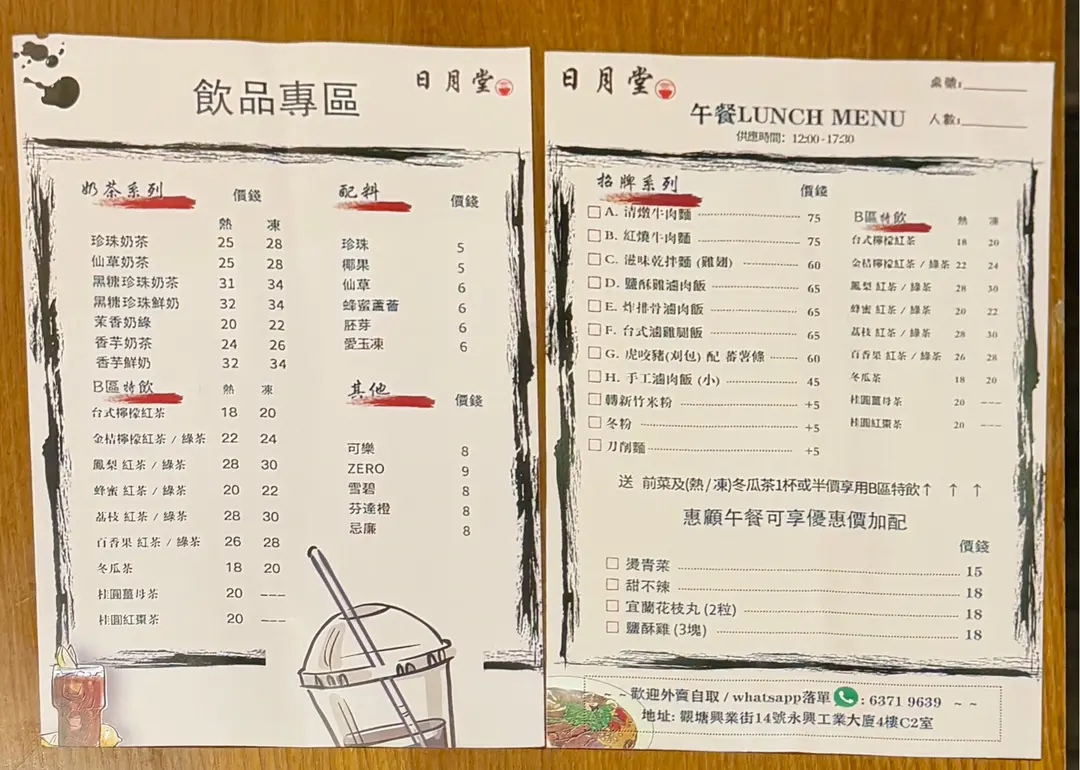 日月堂
飲品專區
奶茶系列 價錢
熱 凍
珍珠奶茶 25 28
仙草奶茶 25 28
黑糖珍珠奶茶 31 34
黑糖珍珠鮮奶 32 34
茉香奶綠 20 22
香芋奶茶 24 26
香芋鮮奶 32 34
B區特飲 熱 凍
台式檸檬紅茶 18 20
金桔檸檬紅茶 / 綠茶 22 24
鳳梨 紅茶 / 綠茶 28 30
蜂蜜 紅茶 / 綠茶 20 22
荔枝 紅茶 / 綠茶 28 30
百香果 紅茶 / 綠茶 26 28
冬瓜茶 18 20
桂圓薑母茶 20 ---
桂圓紅棗茶 20 ---
配料 價錢
珍珠 5
椰果 5
仙草 6
蜂蜜蘆薈 6
胚芽 6
愛玉凍 6
其他 價錢
可樂 8
ZERO 9
雪碧 8
芬達橙 8
忌廉 8
日月堂
桌號:
人數:
午餐LUNCH MENU
供應時間: 12:00-17:30
招牌系列 價錢
A. 清燉牛肉麵 75
B. 紅燒牛肉麵 75
C. 滋味乾拌麵 (雞翅) 60
D. 鹽酥雞滷肉飯 65
E. 炸排骨滷肉飯 65
F. 台式滷雞腿飯 65
G. 虎咬豬(刈包) 配 蕃薯條 60
H. 手工滷肉飯 (小) 45
轉新竹米粉 +5
冬粉 +5
刀削麵 +5
B區特飲 熱 凍
台式檸檬紅茶 18 20
金桔檸檬紅茶 / 綠茶 22 24
鳳梨 紅茶 / 綠茶 28 30
蜂蜜 紅茶 / 綠茶 20 22
荔枝 紅茶 / 綠茶 28 30
百香果 紅茶 / 綠茶 26 28
冬瓜茶 18 20
桂圓薑母茶 20 ---
桂圓紅棗茶 20 ---
送 前菜及(熱/凍)冬瓜茶1杯或半價享用B區特飲↑ ↑ ↑
惠顧午餐可享優惠價加配
價錢
燙青菜 15
甜不辣 18
宜蘭花枝丸 (2粒) 18
鹽酥雞 (3塊) 18
~ ~ 歡迎外賣自取 / whatsapp落單 : 6371 9639 ~ ~
地址: 觀塘興業街14號永興工業大廈4樓C2室